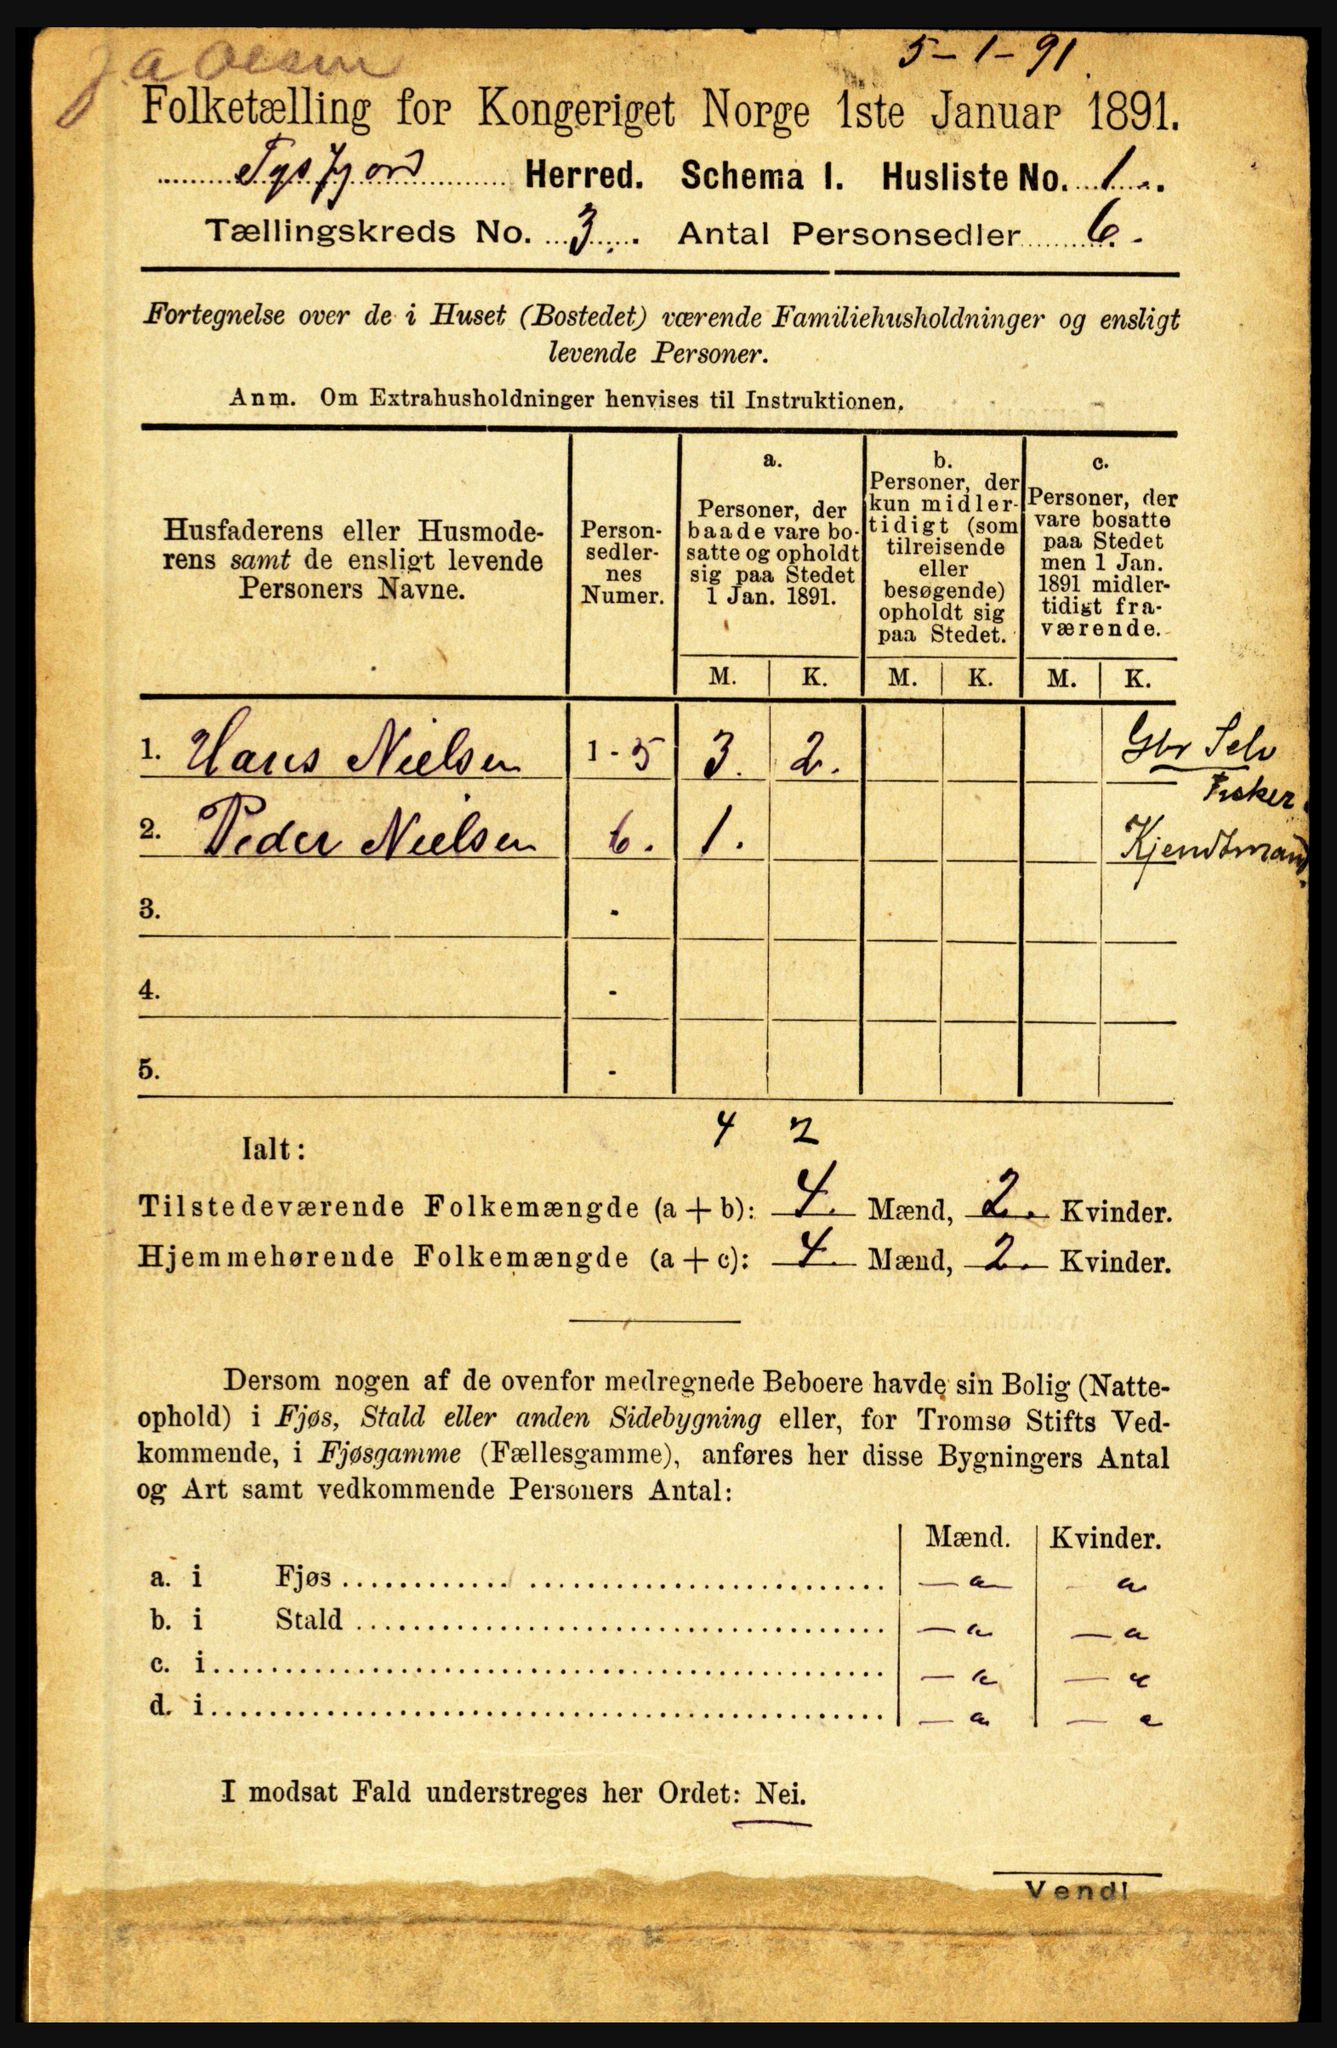 5-1-91.
Folketælling for Kongeriget Norge 1ste Januar 1891.
Tysfjord Herred. Schema I. Husliste No. 1.
Tællingskreds No. 3. Antal Personsedler 6.
Fortegnelse over de i Huset (Bostedet) værende Familiehusholdninger og ensligt
levende Personer.
Anm. Om Extrahusholdninger henvises til Instruktionen.
Husfaderens eller Husmode-
rens samt de ensligt levende
Personers Navne.
Person-
sedler-
nes
Numer.
a.
Personer, der
baade vare bo-
satte og opholdt
sig paa Stedet
1 Jan. 1891.
b.
Personer, der
kun midler-
tidigt (som
tilreisende
eller
besøgende)
opholdt sig
paa Stedet.
c.
Personer, der
vare bosatte
paa Stedet
men 1 Jan.
1891 midler-
tidigt fra-
værende.
M. K. M. K. M. K.
1. Hans Nielsen 1-5 3. 2. Gbr Selv
Fisker
2. Peder Nielsen 6. 1. Kjendtmand.
3. -
4. -
5. -
4 2
Ialt:
Tilstedeværende Folkemængde (a + b): 4. Mænd, 2. Kvinder.
Hjemmehørende Folkemængde (a + c): 4. Mænd, 2. Kvinder.
Dersom nogen af de ovenfor medregnede Beboere havde sin Bolig (Natte-
ophold) i Fjøs, Stald eller anden Sidebygning eller, for Tromsø Stifts Ved-
kommende, i Fjøsgamme (Fællesgamme), anføres her disse Bygningers Antal
og Art samt vedkommende Personers Antal:
Mænd. Kvinder.
a. i Fjøs — a - a
b. i Stald — a — a
c. i — a — a
d. i — a — a
I modsat Fald understreges her Ordet: Nei.
Vend!